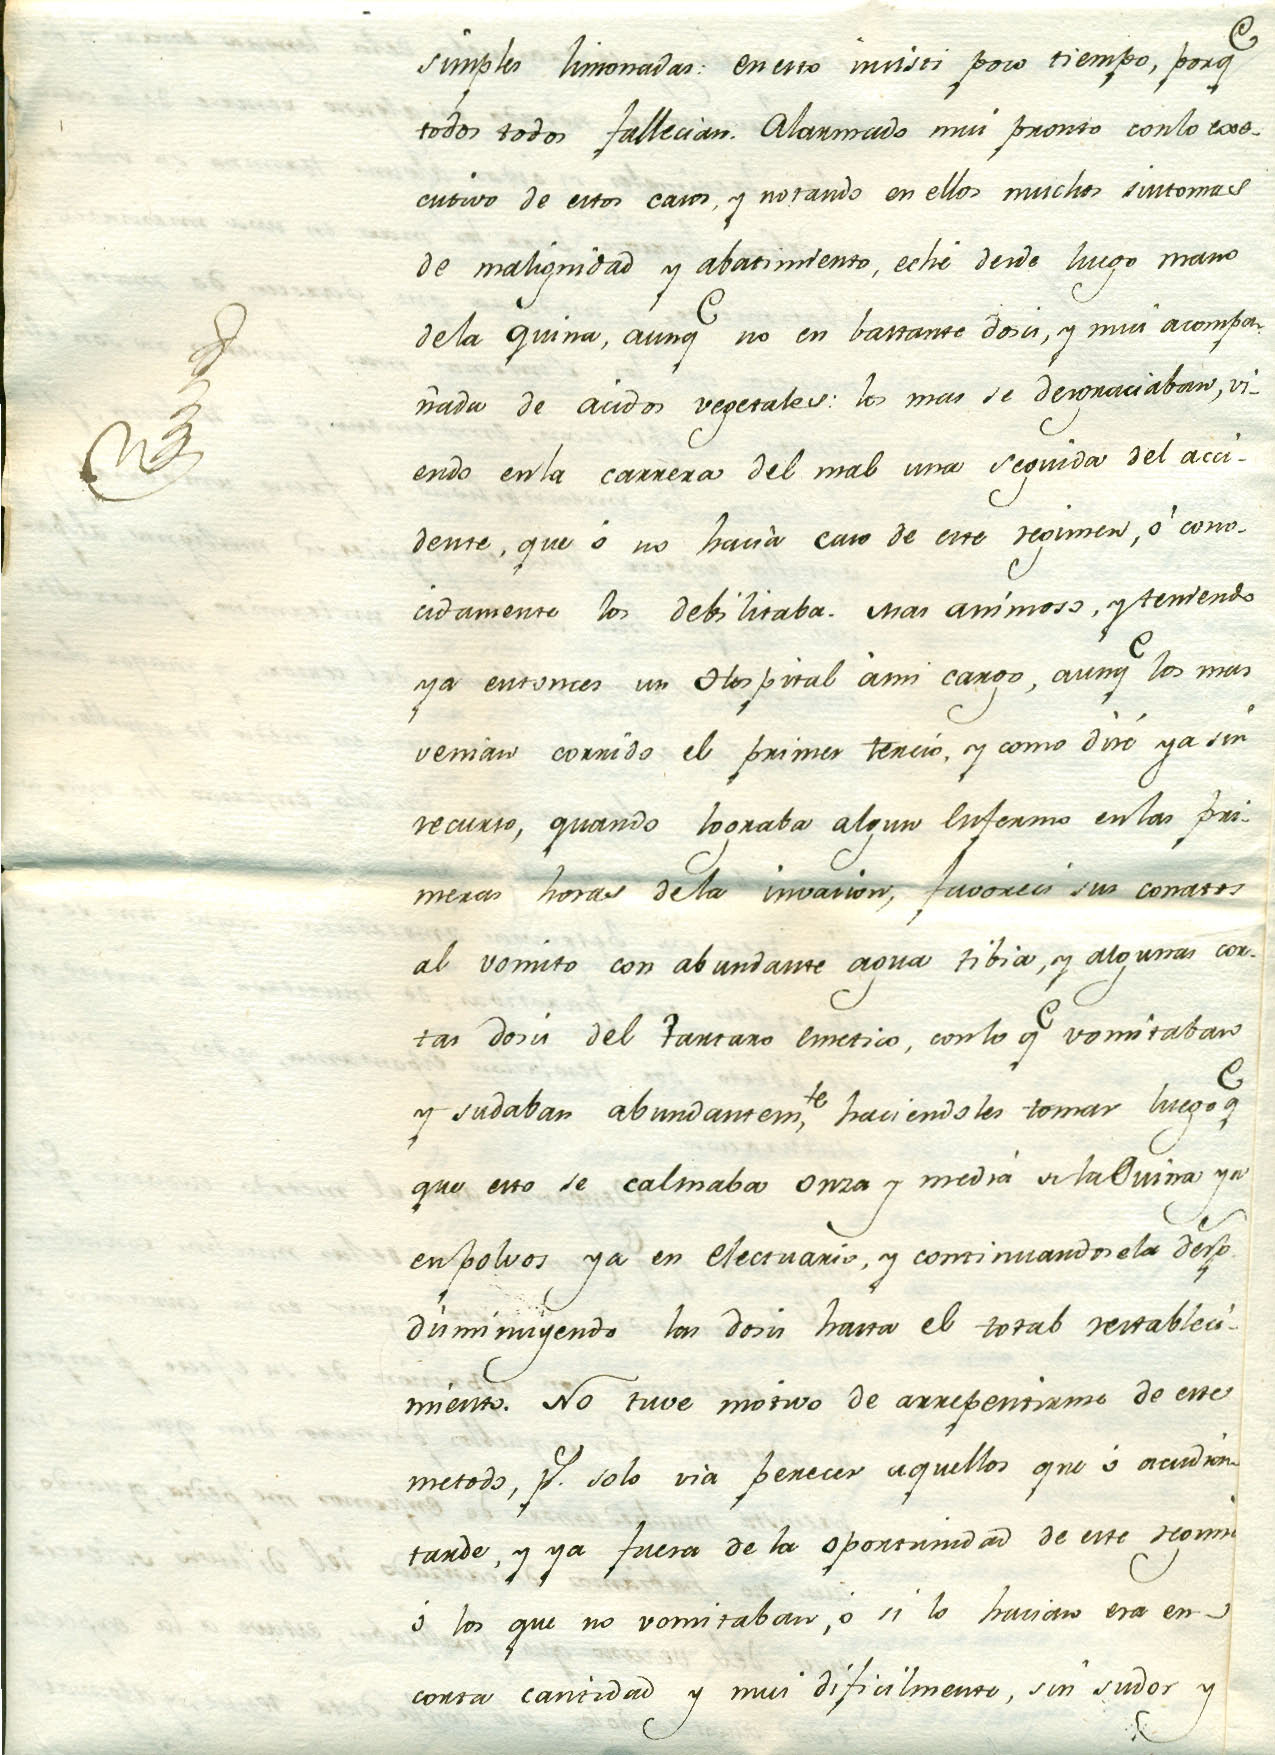 simples limonadas: en esto insisti poco tiempo, porq.e
todos todos fallecian. Alarmado mui pronto con lo exe-
cutivo de estos casos, y notando en ellos muchos sintomas
de malignidad y abatimiento, eché desde luego mano
dela quina, aunq.e no en bastante dosis, y mui acompa-
ñada de acidos vegetales: los mas se desgraciaban, vi-
endo enla carrera del mal una seguida del acci-
dente, que ó no hacia caso de este regimen, ó cono-
cidamente los debilitaba. Mas animoso, y teniendo
ya entonces un Hospital ami cargo, aunq.e los mas
venian corrido el primer tercio, y como diré ya sin
recurso, quando lograba algun Enfermo enlas pri-
meras horas dela invasion, favoreci sus conatos
al vomito con abundante agua tibia, y algunas cor-
tas dosis del Tartaro emetico, conlo q.e vomitaban
y sudaban abundantem.te, haciendoles tomar luego q.e
que esto se calmaba onza y media de la Quina ya
en polvos ya en electuario, y continuandosela desp.s
disminuyendo las dosis hasta el total restableci-
miento. No tuve motivo de arrepentirme de este
metodo, p.s solo via perecer aquellos que ó acudian
tarde, y ya fuera de la oportunidad de este regim
ó los que no vomitaban, ó si lo hacian era en
corta cantidad y mui dificilmente, sin sudor y